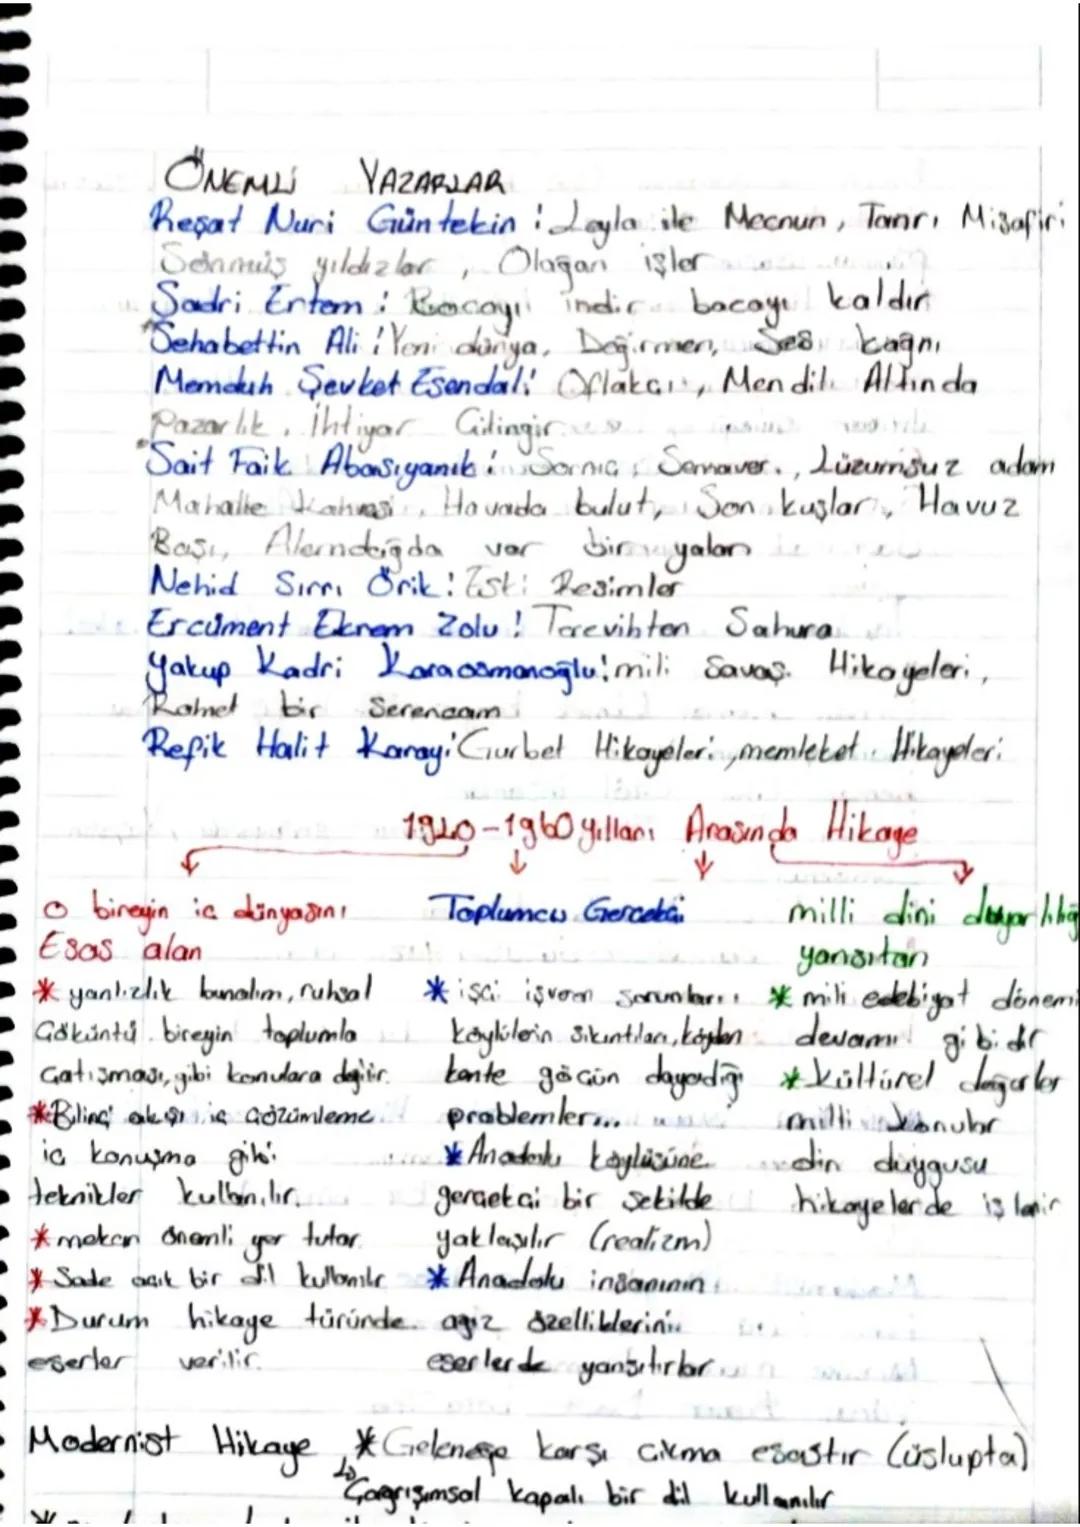 ÖNEMLİ YAZARLAR
Reşat Nuri Güntekin : Leyla ile Mecnun, Tanrı Misafiri
Sönmüş yıldızlar, Olağan işler
Sadri Ertem : Bacayı indir bacayı kaldır
Sehabettin Ali : Yeni dünya, Değirmen, Ses kağnı
Memduh Şevket Esendal : Otlakcı, Mendil Altında
Pazarlık, İhtiyar Cilingir
Sait Faik Abasıyanık : Sarnıc, Semaver, Lüzumsuz adam
Mahalle Kahvesi, Havada bulut, Son kuşlar, Havuz
Başı, Alemdağda var bir yalan
Nehid Sırrı Örik : Eski Resimler
Ercüment Ekrem Zolu : Terevihten Sahura
Yakup Kadri Karaosmanoğlu : mili Savaş Hikayeleri,
Rahmet bir Serencam
Refik Halit Karay : Gurbet Hikayeleri, memleket Hikayeleri
1940-1960 yılları Arasında Hikaye
o bireyin ic dünyasını
Esas alan
* yanlızlık bunalım, ruhsal
Cöküntü bireyin toplumla
Catısması, gibi konulara değinir.
* Bilinç akışı ic Cözümleme
ic konuşma gibi
teknikler kullanılır.
* mekan önemli yer tutar
* Sade acık bir dil kullanılr
* Durum hikaye türünde
eserler verilir.
Toplumcu Gercekci
* işci işveren sorunları
köylülerin sıkıntıları, köyden
kente göcün dayandığı
problemler...
* Anadolu köylüsüne
gercekci bir sekilde
yaklaşılır (realizm)
* Anadolu insanının
ağız özelliklerini
eserlerde yansıtırlar
milli dini duyarlılığı
yansıtan
* mili edebiyat dönemi
devamı gibidir
* Kültürel değerler
milli konular
din duygusu
hikayelerde islenir
Modernist Hikaye * Geleneğe karşı cıkma esastır (üslupta)
↳ Cağrışımsal kapalı bir dil kullanılır